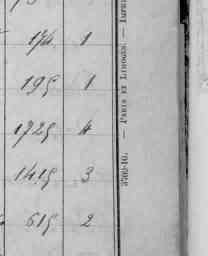 174 1
195 1
1725 4
1415 3
615 2
3702-16. — PARIS ET LIMOGES. — IMPR